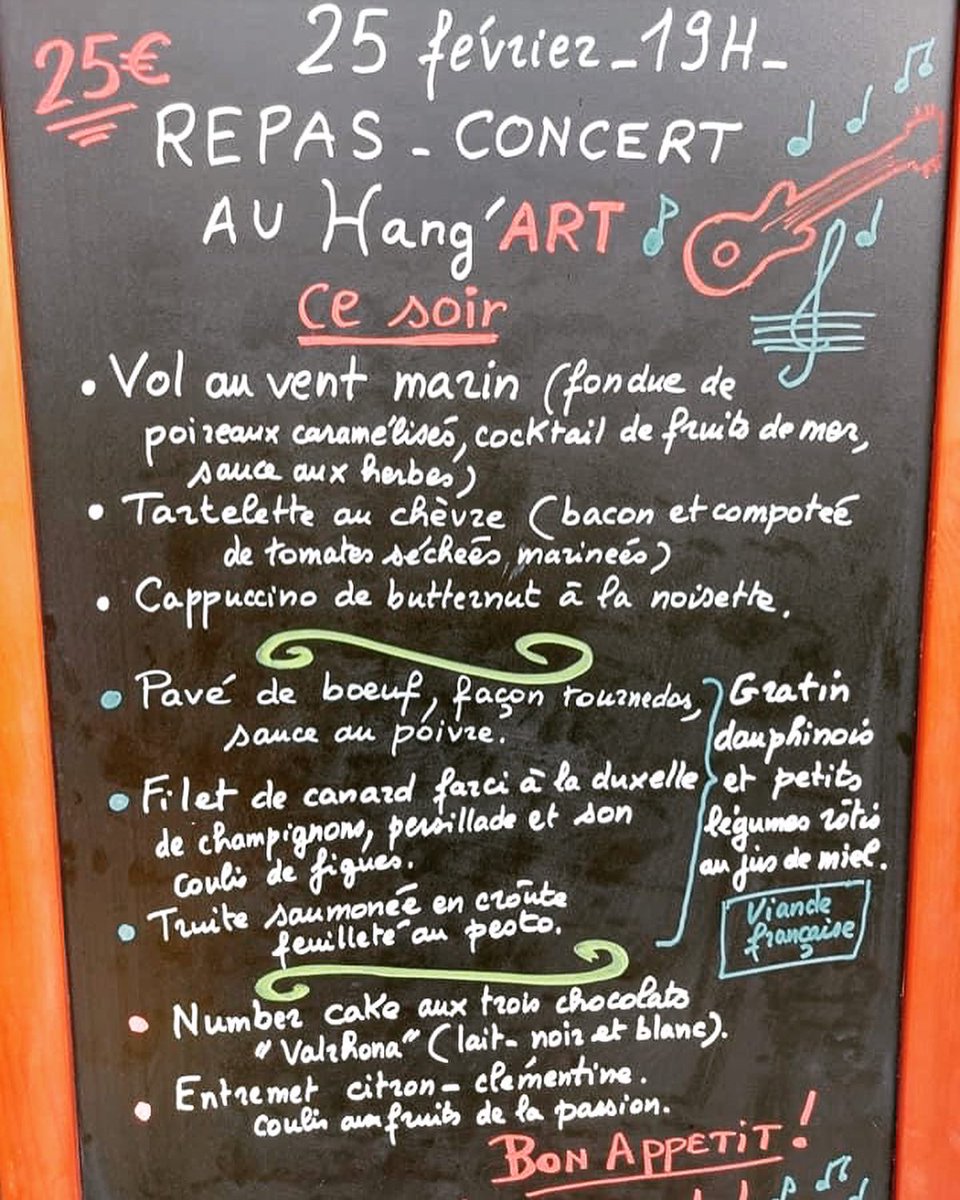 25€
25 février_19H_
REPAS - CONCERT
AU Hang'ART
Ce soir
• Vol au vent marin (fondue de
poireaux caramélisés, cocktail de fruits de mer,
sauce aux herbes)
• Tartelette au chèvre (bacon et compotée
de tomates séchées marinées)
• Cappuccino de butternut à la noisette.
• Pavé de boeuf, façon tournedos,
sauce au poivre.
• Filet de canard farci à la duxelle
de champignons, persillade et son
coulis de figues.
• Truite saumonée en croûte
feuilleté au pesto.
Gratin
dauphinois
et petits
légumes rôtis
au jus de miel.
Viande
française
• Number cake aux trois chocolats
"Valrhona" (lait- noir et blanc).
• Entremet citron - clémentine.
coulis aux fruits de la passion.
BON APPETIT !